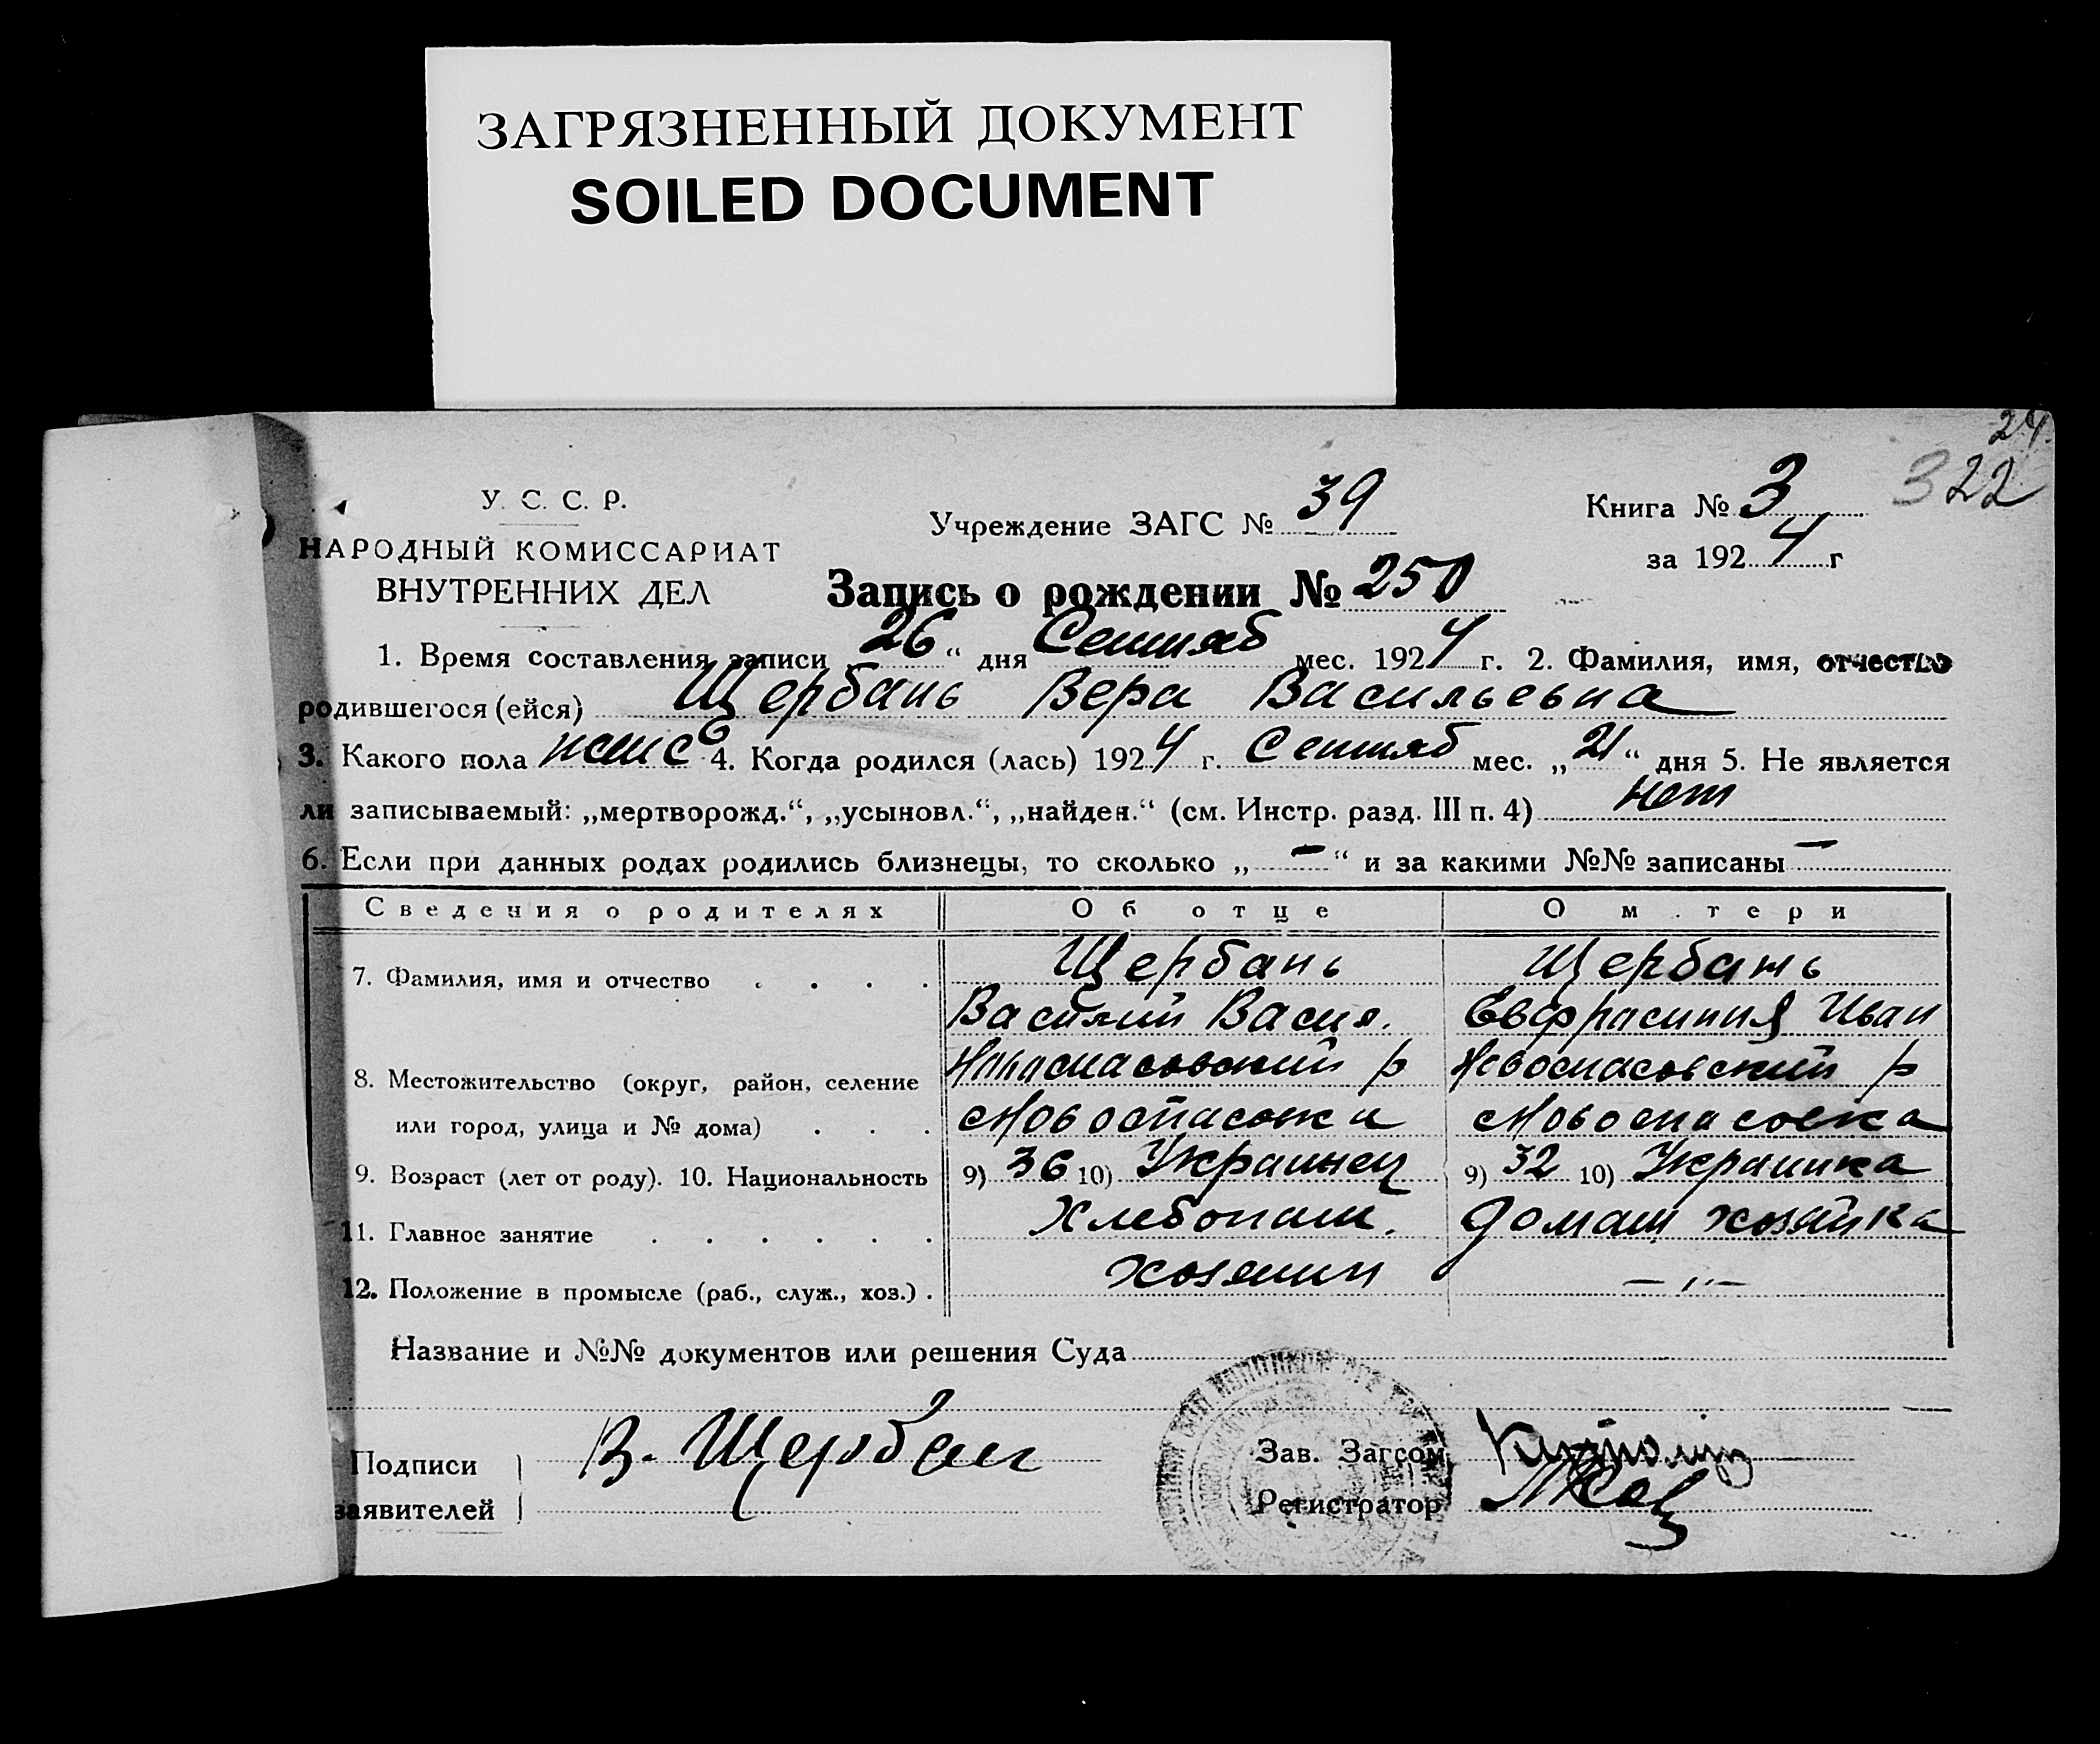 ЗАГРЯЗНЕННЫЙ ДОКУМЕНТ
SOILED DOCUMENT
24.
322
У. С. С. Р.
НАРОДНЫЙ КОМИССАРИАТ
ВНУТРЕННИХ ДЕЛ
Учреждение ЗАГС № 39
Книга № 3
за 1924 г
Запись о рождении № 250
1. Время составления записи 26 “ дня Сентяб мес. 1924 г. 2. Фамилия, имя, отчество
родившегося (ейся) Щербань Вера Васильевна
3. Какого пола женс 4. Когда родился (лась) 1924 г. Сентяб мес. „ 21 “ дня 5. Не является
ли записываемый: „мертворожд.“, „усыновл.“, „найден.“ (см. Инстр. разд. III п. 4) нет
6. Если при данных родах родились близнецы, то сколько „ — “ и за какими №№ записаны —
Сведения о родителях Об отце О м.тери
7. Фамилия, имя и отчество . . . . Щербань Щербань
Василий Васил. Евфрасиния Иван
8. Местожительство (округ, район, селение Новоспасовский р Новоспасовский р
или город, улица и № дома) . . . Новоспасовка Новоспасовка
9. Возраст (лет от роду). 10. Национальность 9) 36 10) Украинец 9) 32 10) Украинка
11. Главное занятие . . . . . . Хлебопаш. Домаш хозяйка
12. Положение в промысле (раб., служ., хоз.) . хозяин — „ —
Название и №№ документов или решения Суда
Подписи
заявителей
В. Щербан
Зав. Загсом
Регистратор